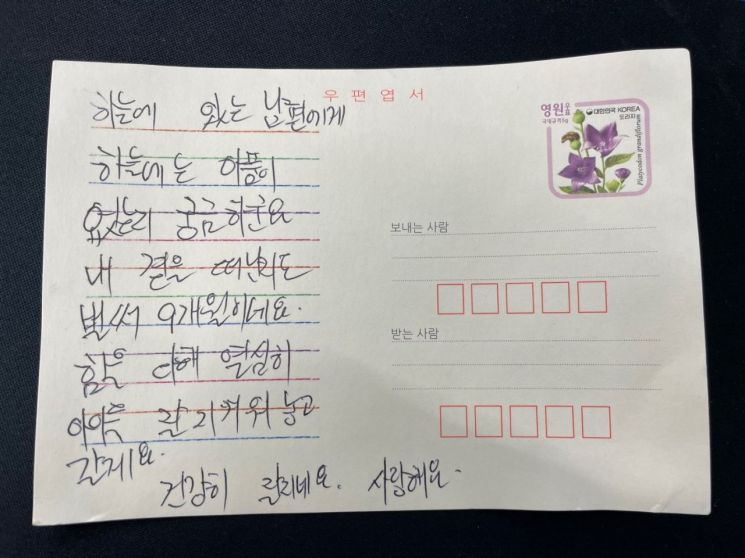 우편엽서
영원 우표
국내규격 5g
대한민국 KOREA
도라지
Platycodon grandiflorum
하늘에 있는 남편에게
하늘에는 아픔이
없는지 궁금하군요
내 곁을 떠난지도
벌써 9개월이네요.
힘을 다해 열심히
아이들 잘 키워 놓고
갈게요.
건강히 잘지내요. 사랑해요.
보내는 사람
받는 사람